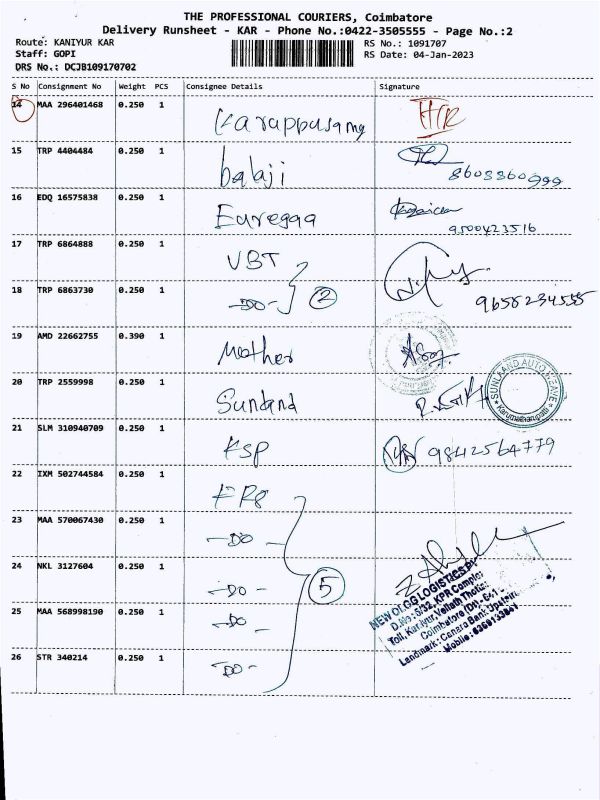 THE PROFESSIONAL COURIERS, Coimbatore
Delivery Runsheet - KAR - Phone No.:0422-3505555 - Page No.:2
Route: KANIYUR KAR RS No.: 1091707
Staff: GOPI RS Date: 04-Jan-2023
DRS No.: DCJB109170702
S No Consignment No Weight PCS Consignee Details Signature
14 MAA 296401468 0.250 1 Karuppusamy
15 TRP 4404484 0.250 1 balaji 8608860999
16 EDQ 16575838 0.250 1 9500423516
17 TRP 6864888 0.250 1 VBT
18 TRP 6863730 0.250 1 -DO- 2 9658234555
19 AMD 22662755 0.390 1 Mother
20 TRP 2559998 0.250 1 Sunland
SUNLAAND AUTO
Karumathampatti
21 SLM 310940709 0.250 1 KSP 9842564779
22 IXM 502744584 0.250 1
23 MAA 570067430 0.250 1 -DO-
24 NKL 3127604 0.250 1 -DO- 5
25 MAA 568998190 0.250 1 -DO-
26 STR 340214 0.250 1 -DO-
NEW OLOG LOGISTICS
D.No: 6/32, KPR Complex
Toll, Kaniyur,
Coimbatore (Dt) - 641
Landmark: Canara Bank
Mobile: